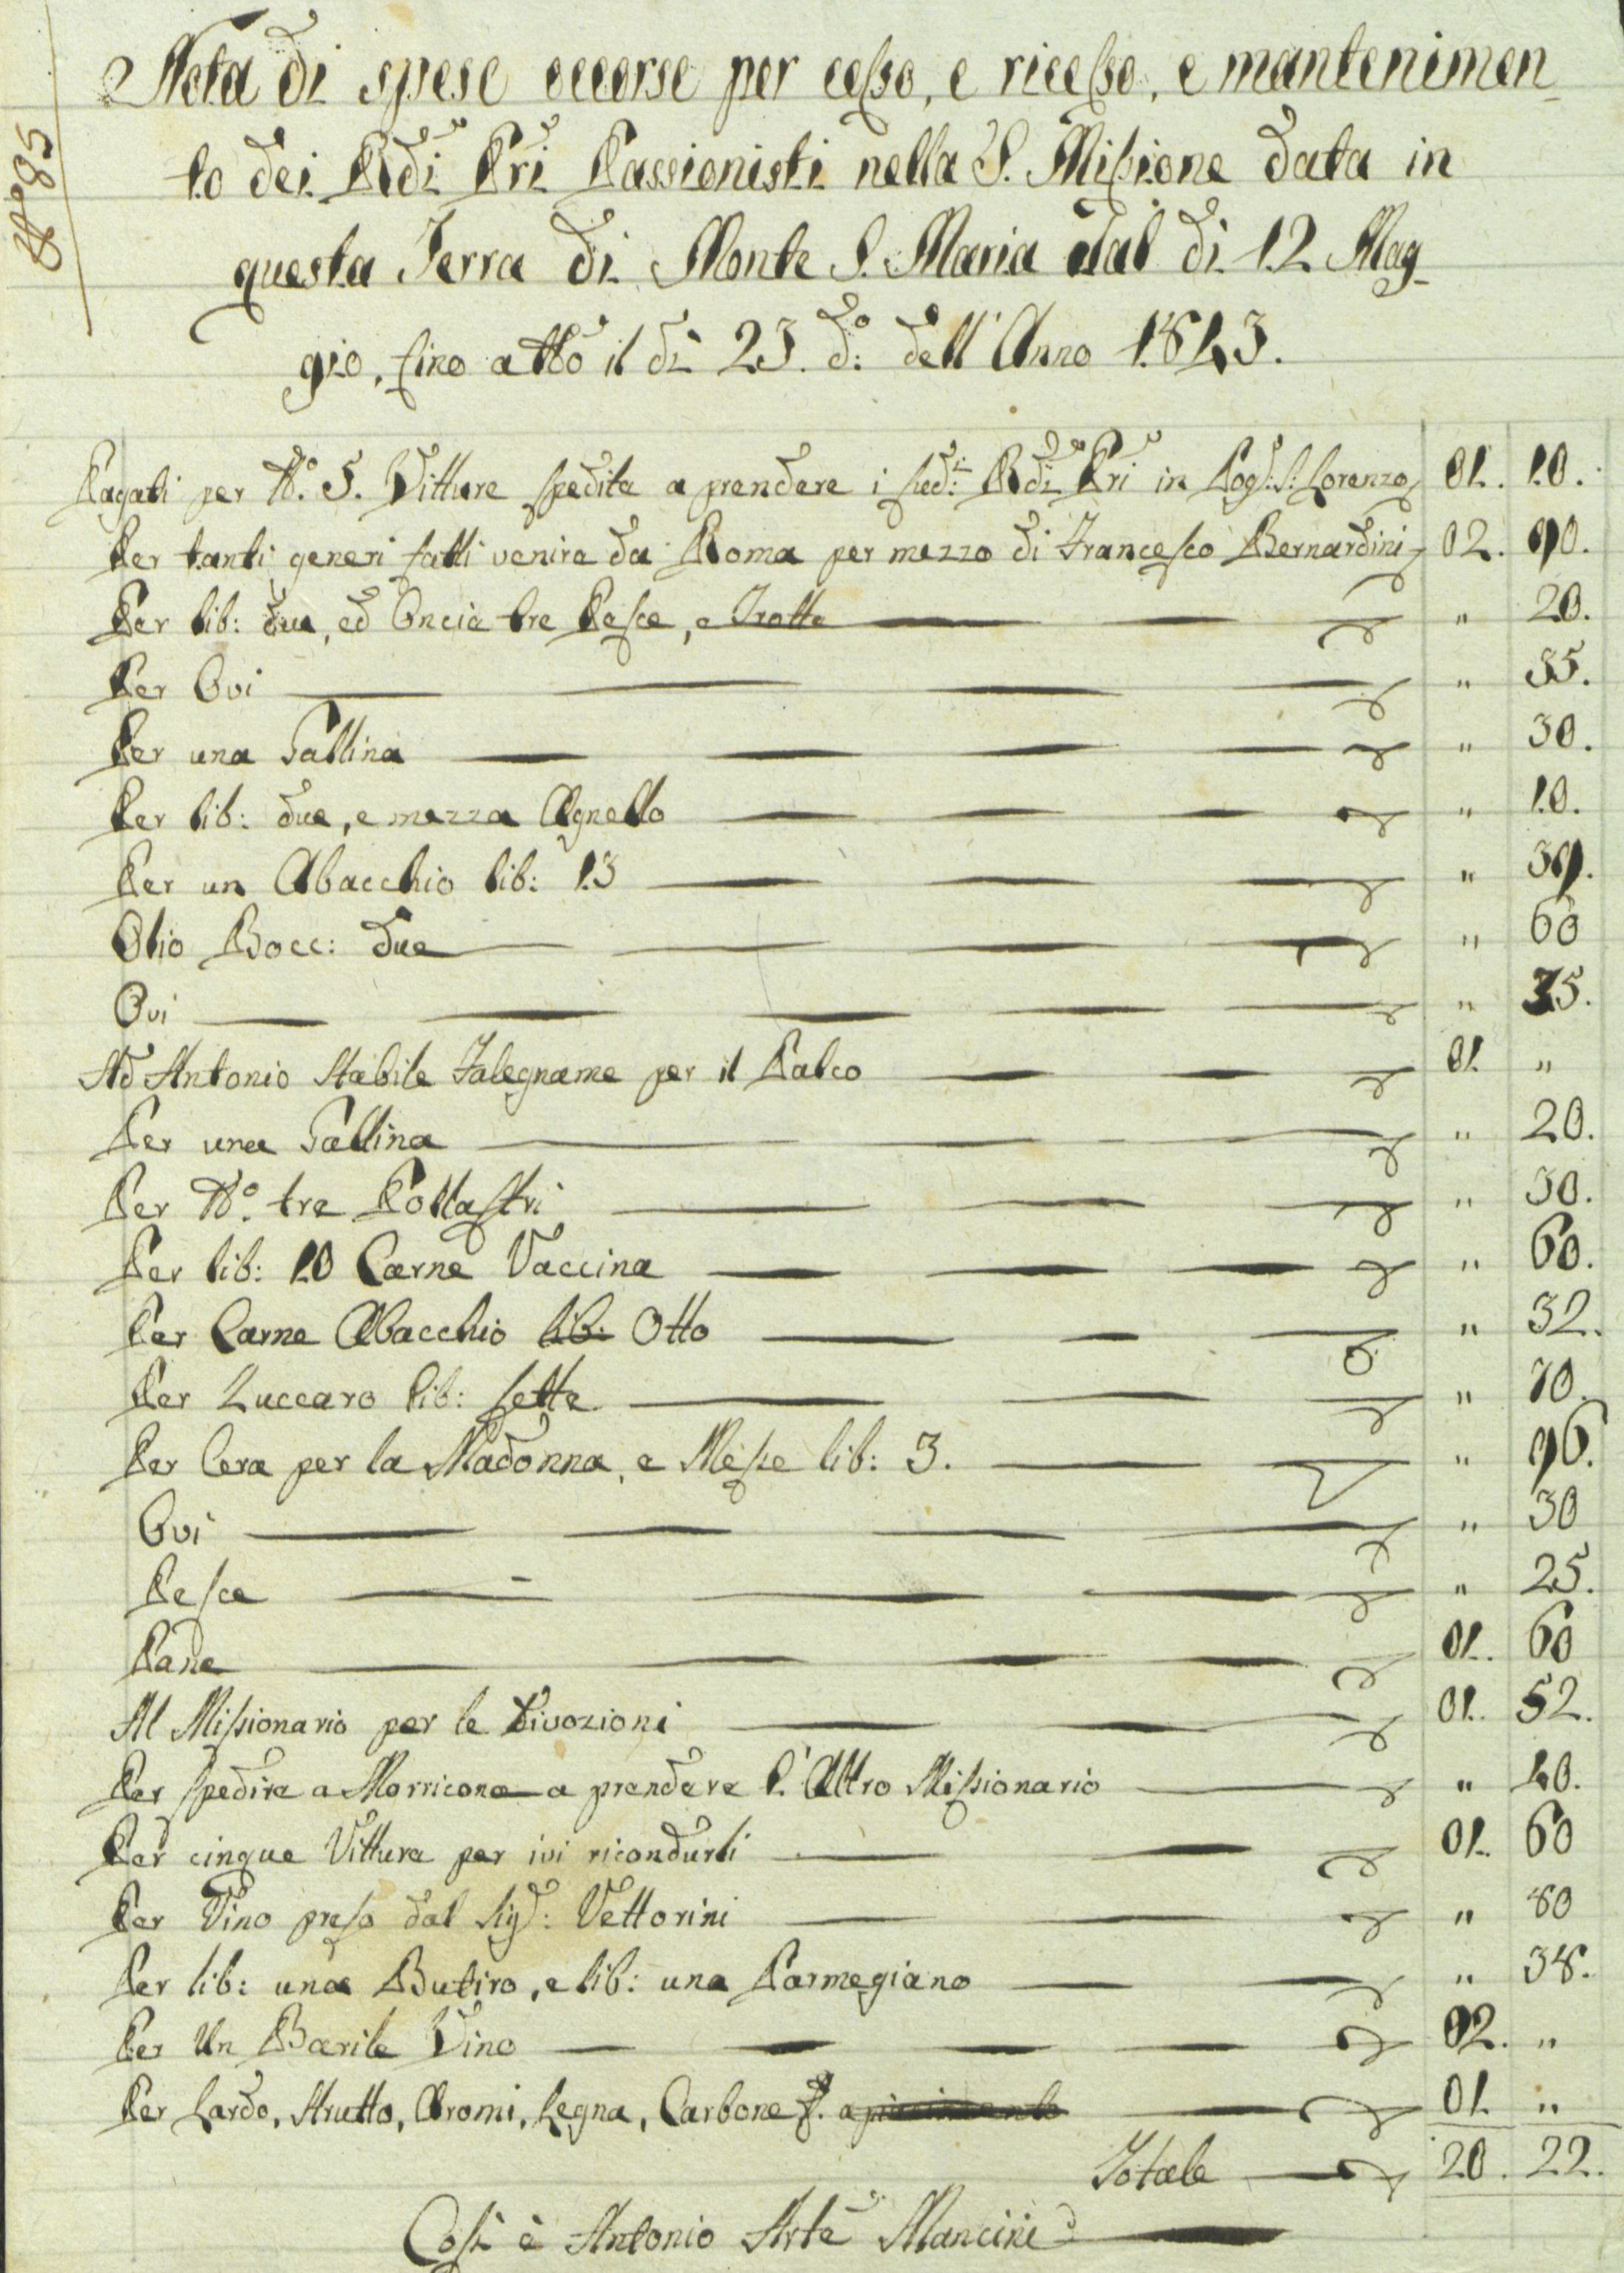 N° 85
Nota di spese occorse per cesso, e ricesso, e mantenimen
to dei RR̃di Pri Passionisti nella S. Missione data in
questa Terra di Monte S. Maria dal di 12 Mag-
gio, fino a tt̃o il di 23. d°: dell'Anno 1843.
Pagati per N°. 5. Vitture spedite a prendere i sud:ti Rdi Pri in Pog: S: Lorenzo 01. 10.
Per tanti generi fatti venire da Roma per mezzo di Francesco Bernardini 02. 90.
Per lib: due, ed Oncia tre Pesce, e Trotte " 20.
Per Ovi " 35.
Per una Gallina " 30.
Per lib: due, e mezza Agnello " 10.
Per un Abacchio lib: 13 " 39.
Olio Bocc: due " 60
Ovi " 35.
Ad Antonio Stabile Falegname per il Palco 01. "
Per una Gallina " 20.
Per N°. tre Pollastri " 30.
Per lib: 10 Carne Vaccina " 60.
Per Carne Abacchio lib: Otto " 32.
Per Zuccaro lib: sette " 70.
Per Cera per la Madonna, e Messe lib: 3. " 96.
Ovi " 30
Pesce " 25.
Pane 01. 60
Al Missionario per le Divozioni 01. 52.
Per spedire a Morricone a prendere l'Altro Missionario " 40.
Per cinque Vitture per ivi ricondurli 01. 60
Per Vino preso dal Sig: Vettorini " 80
Per lib: una Butiro, e lib: una Parmegiano " 38.
Per Un Barile Vino 02. "
Per Lardo, Strutto, Aromi, Legna, Carbone 01. "
Totale 20. 22.
Così è Antonio Arte Mancini